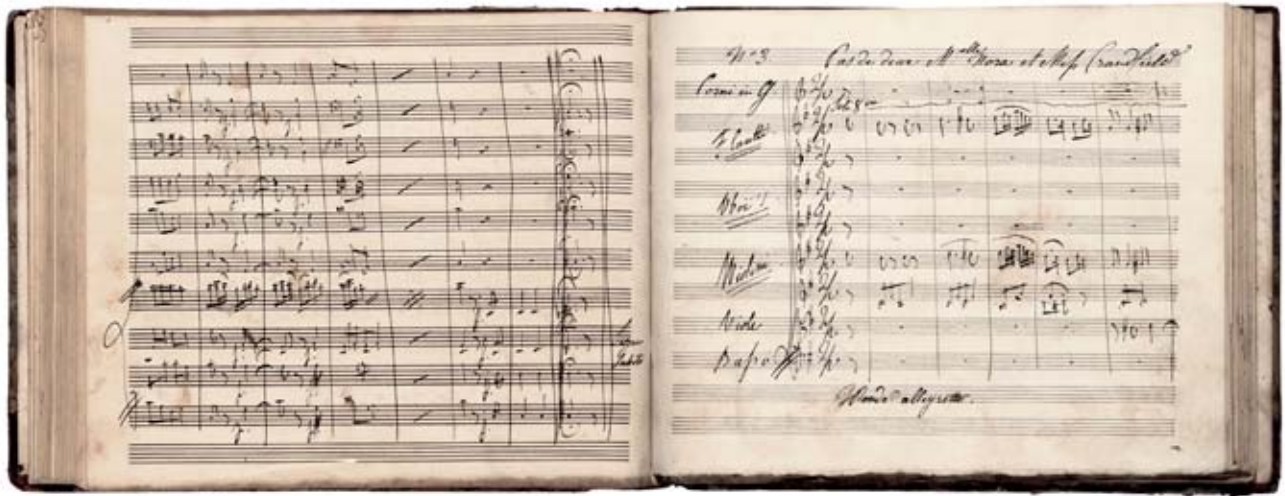 Subito
N° 3. Pas de deux M^elle Nora et
Corni in G
Flauti
Oboi
Violini
Viole
Basso
Rondo allegretto.